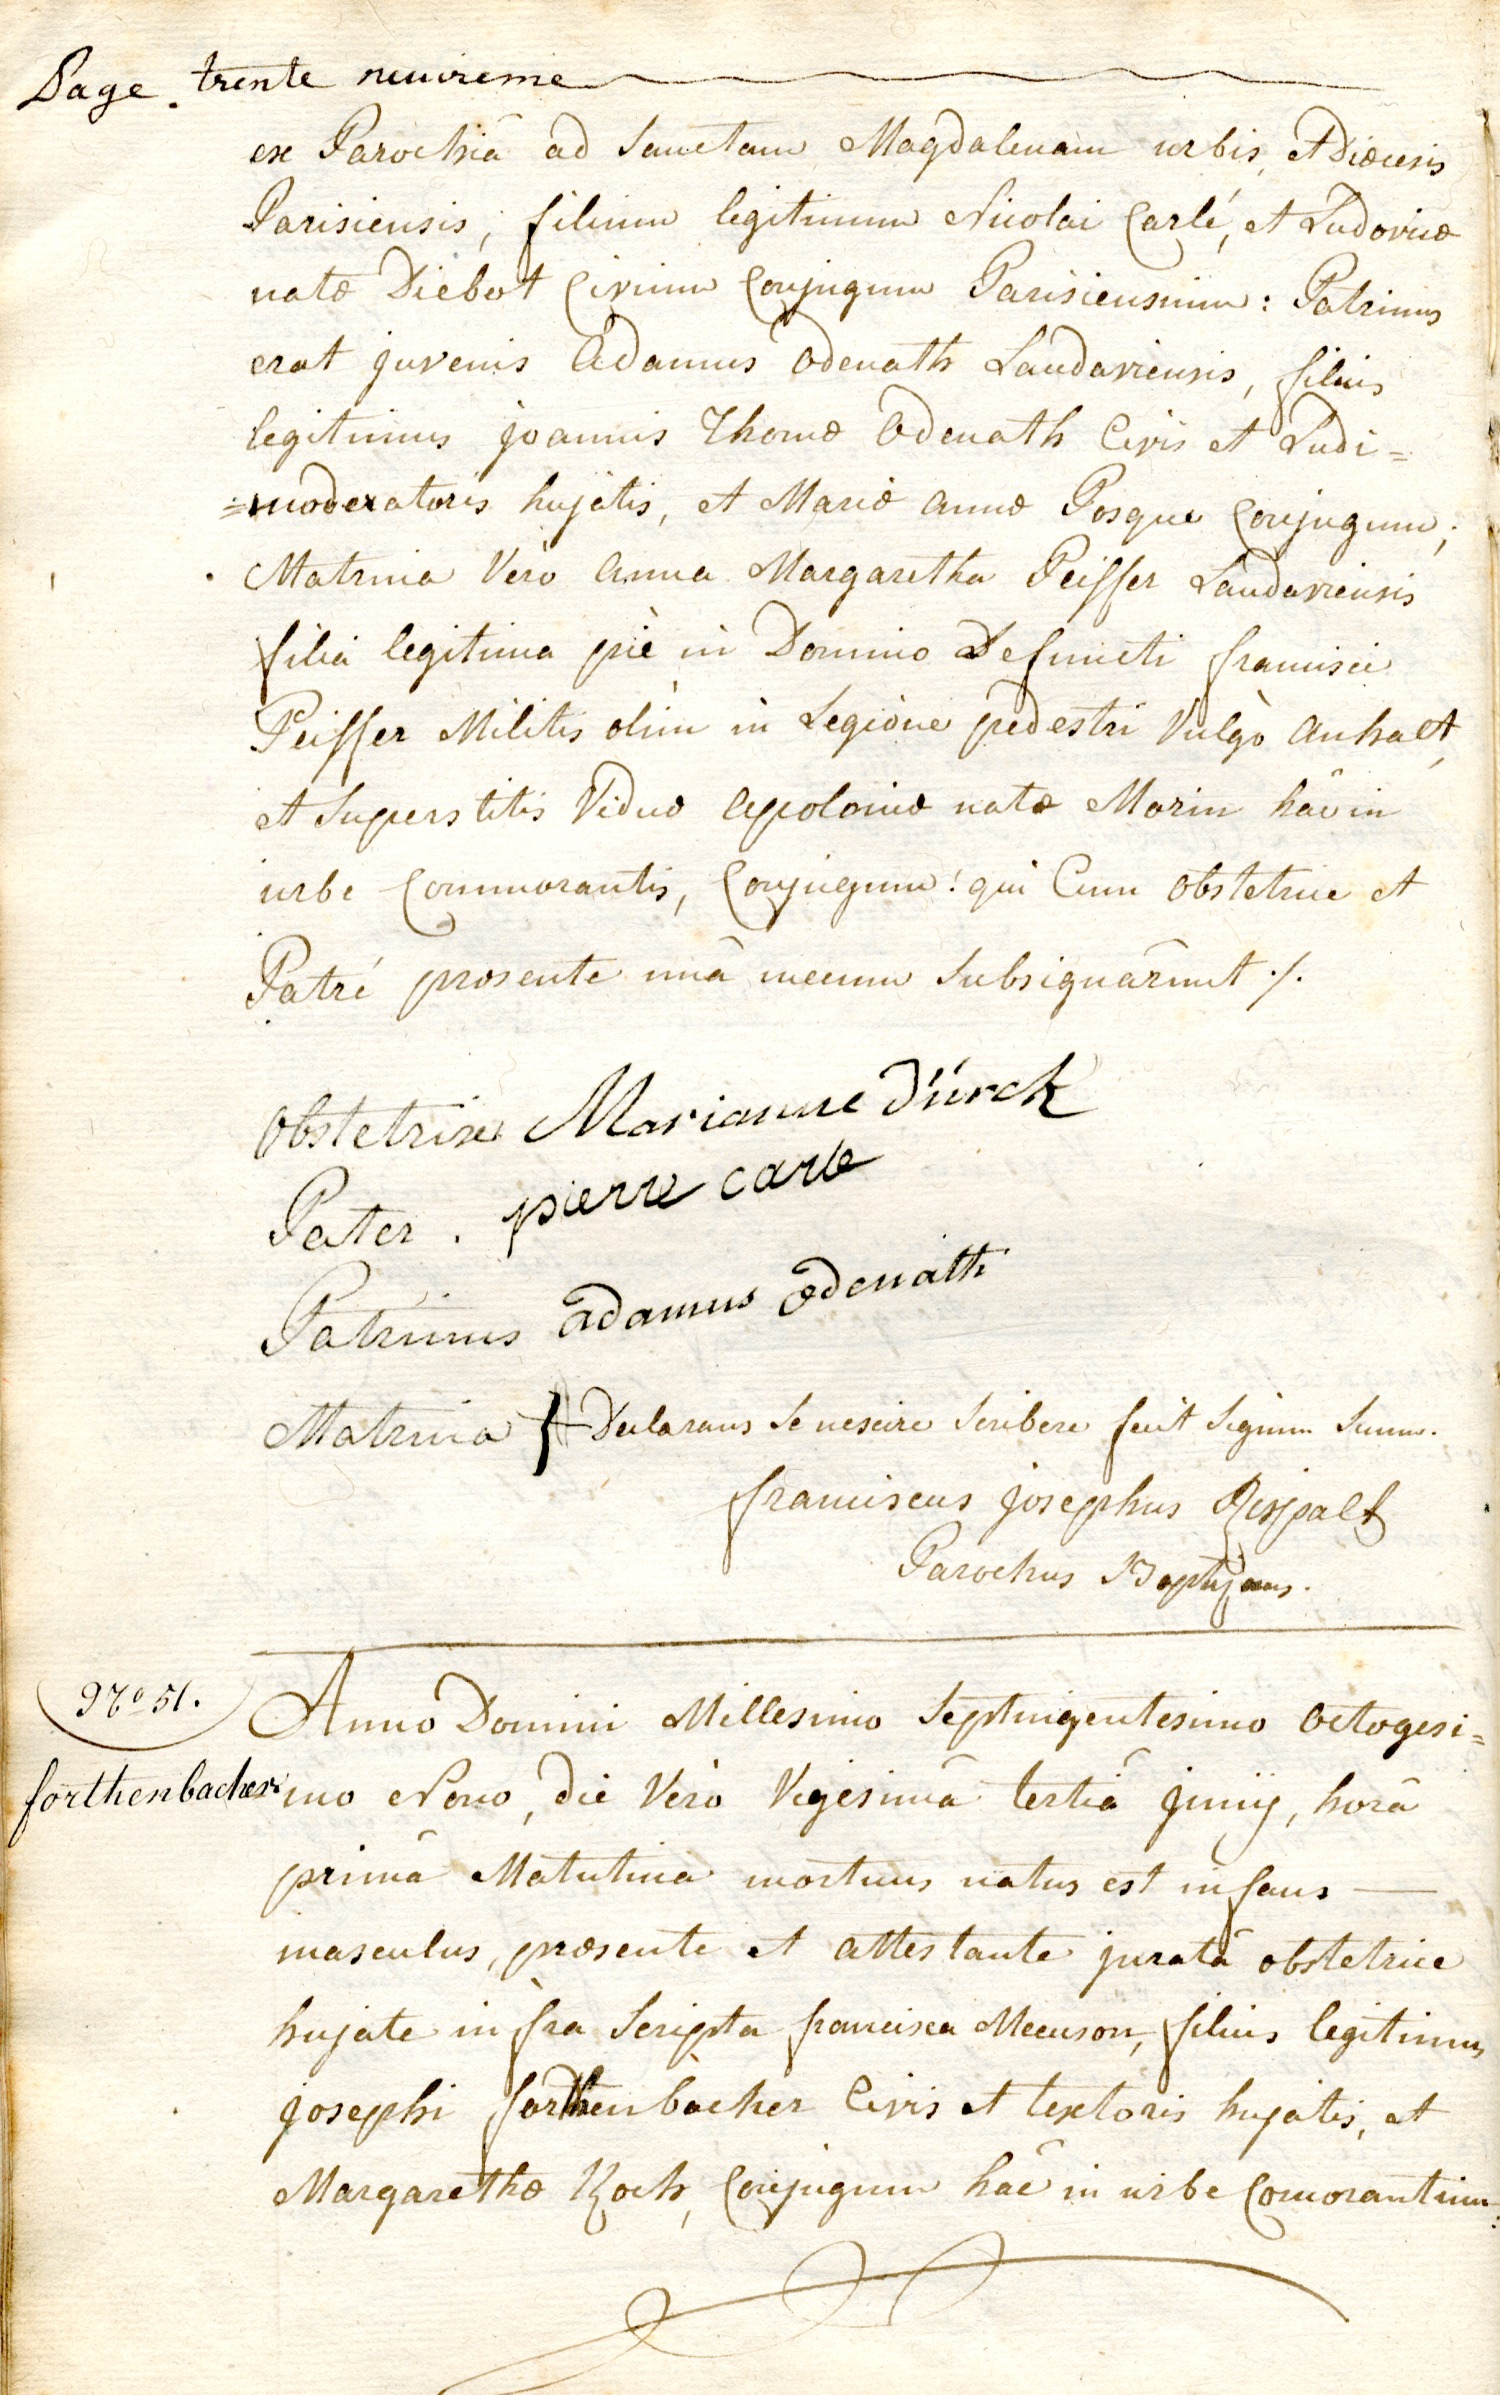 Page trente neuvieme
ex Parochiâ ad Sanctam Magdalenam urbis, et Diœcesis
Parisiensis, filium legitimum Nicolai Carlé, et Ludovicæ
natæ Diebot Civium Conjugum Parisiensium: Patrinus
erat juvenis Adamus Odenath Landaviensis, filius
legitimus joannis Thomæ Odenath Civis et Ludi=
=moderatoris hujatis, et Mariæ annæ Posque Conjugum;
Matrina Vero anna Margaretha Peiffer Landaviensis
filia legitima piè in Domino Defuncti francisci
Peiffer Militis olim in Legione pedestri Vulgò anhalt,
et Superstitis Viduæ Apoloniæ natæ Morin hâc in
urbe Commorantis, Conjugum: qui Cum obstetrice et
Patré præsente unâ mecum Subsignârunt ./.
Obstetrix Marianne dürck
Pater . pierre carle
Patrinus adamus odenath
Matrina } Declarans Se nescire Scribere fecit Signum Suum.
franciscus josephus Rispalt
Parochus Baptizans.
No 51.
forthenbacher
Anno Domini Millesimo Septingentesimo Octogesi=
mo Nono, die Verò Vigesimâ tertiâ junij, horâ
primâ Matutina mortuus natus est infans —
masculus, præsente et attestante juratâ obstetrice
hujate infra Scripta francisca Meenson, filius legitimus
josephi forthenbacher Civis et textoris hujatis, et
Margarethæ Koch, Conjugum hâc in urbe Comorantium: